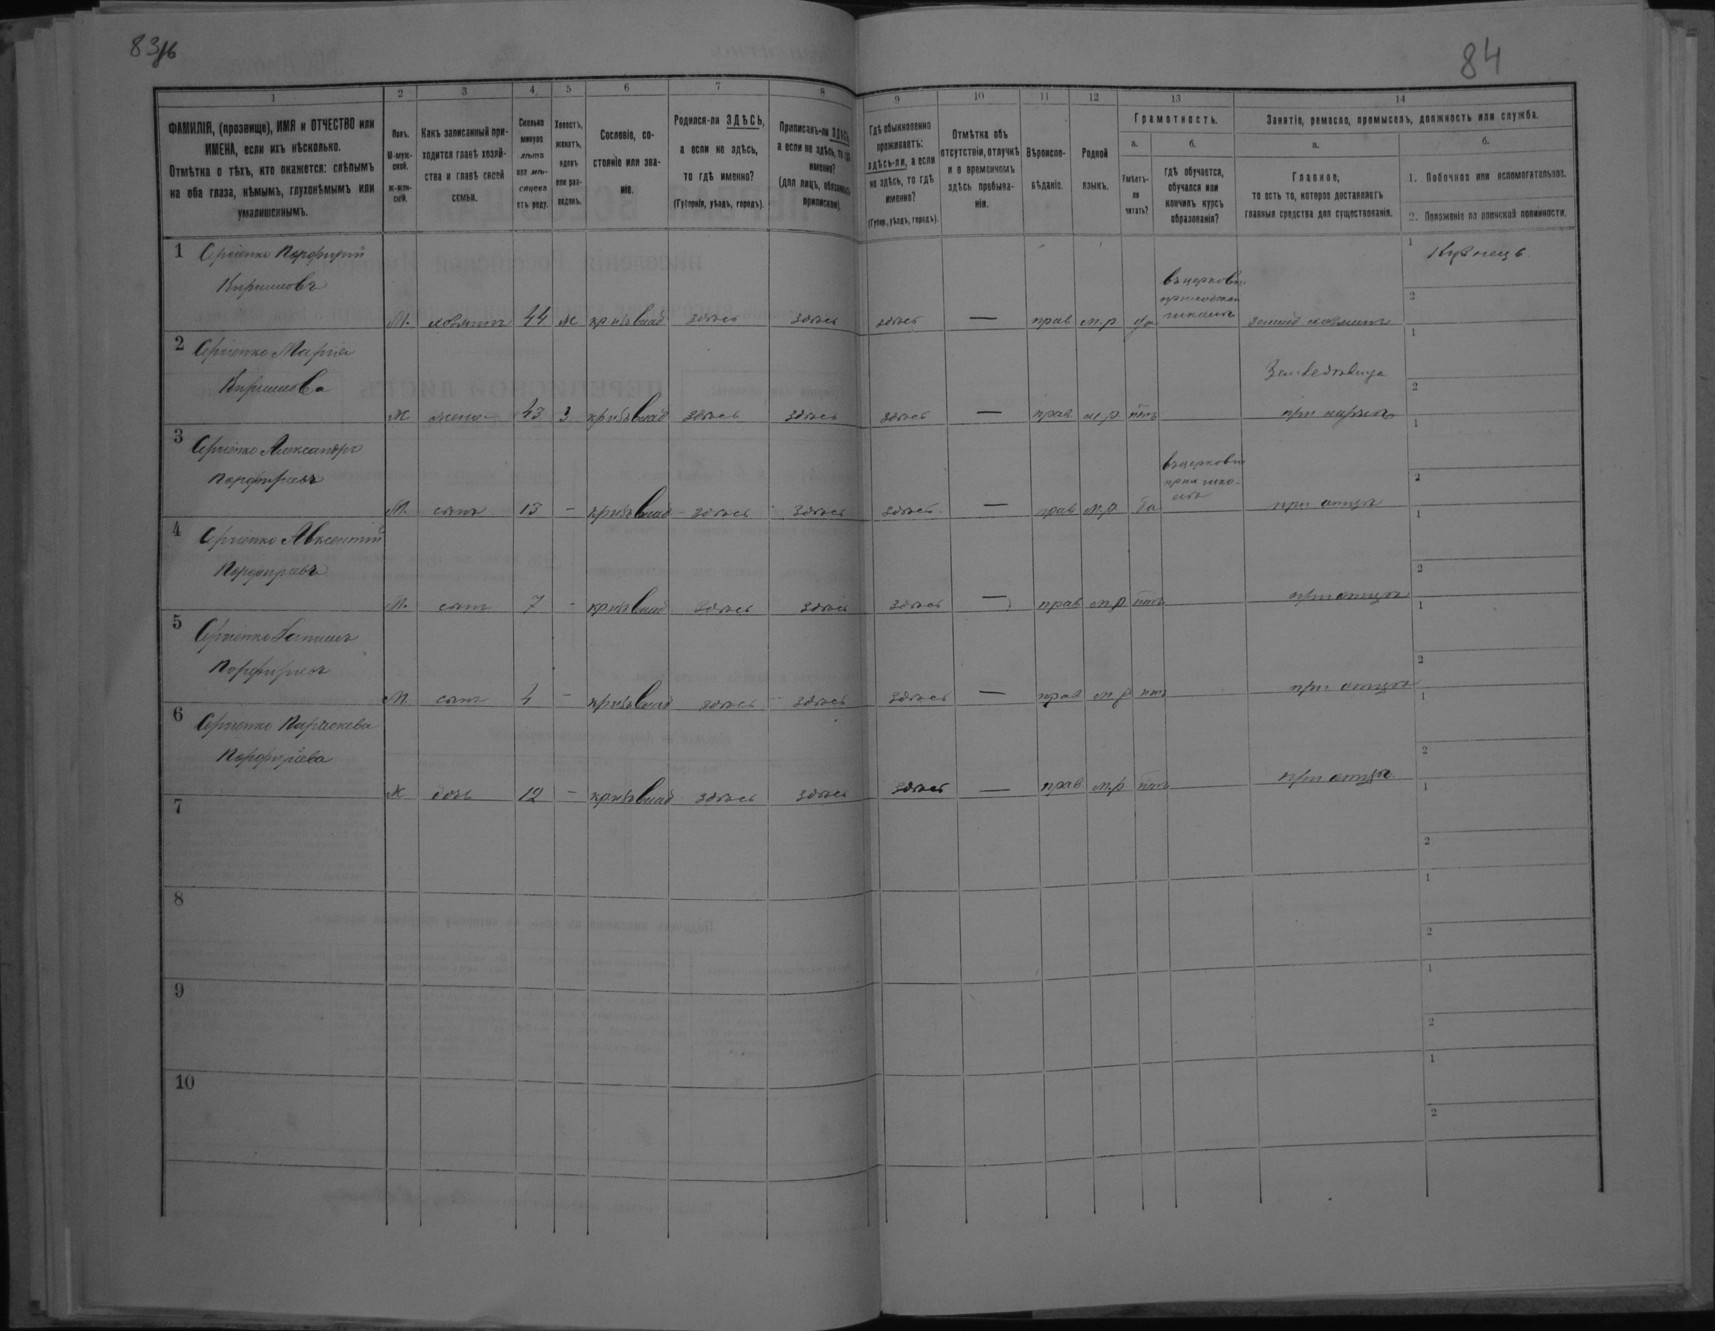 83об
84
1 2 3 4 5 6 7 8 9 10 11 12 13 14
ФАМИЛІЯ, (прозвище), ИМЯ и ОТЧЕСТВО или
ИМЕНА, если ихъ нѣсколько.
Отмѣтка о тѣхъ, кто окажется: слѣпымъ
на оба глаза, нѣмымъ, глухонѣмымъ или
умалишеннымъ.
Полъ.
М-муж-
ской.
Ж-жен-
скій.
Какъ записанный при-
ходится главѣ хозяй-
ства и главѣ своей
семьи.
Сколько
минуло
лѣтъ
или мѣ-
сяцевъ
отъ роду.
Холостъ,
женатъ,
вдовъ
или раз-
веденъ.
Сословіе, со-
стояніе или зва-
ніе.
Родился-ли ЗДѢСЬ,
а если не здѣсь,
то гдѣ именно?
(Губернія, уѣздъ, городъ).
Приписанъ-ли ЗДѢСЬ,
а если не здѣсь, то гдѣ
именно?
(для лицъ, обязанныхъ
припискою).
Гдѣ обыкновенно
проживаетъ:
здѣсь-ли, а если
не здѣсь, то гдѣ
именно?
(Губер., уѣздъ, городъ).
Отмѣтка объ
отсутствіи, отлучкѣ
и о временномъ
здѣсь пребыва-
ніи.
Вѣроиспо-
вѣданіе.
Родной
языкъ.
Грамотность.
а.
Умѣетъ-
ли
читать?
б.
гдѣ обучается,
обучался или
кончилъ курсъ
образованія?
Занятіе, ремесло, промыселъ, должность или служба.
а.
Главное,
то есть то, которое доставляетъ
главныя средства для существованія.
б.
1. Побочное или вспомогательное.
2. Положеніе по воинской повинности.
1 Сергіенко Порфирій
М. хозяинъ 44 ж здѣсь здѣсь здѣсь — прав м.р да
1 Кузнецъ
2
2 Сергіенко Марія
Ж жена 43 з здѣсь здѣсь здѣсь — прав м.р нѣтъ при мужѣ
1
2
3 Сергіенко Александръ
Порфиріевъ
М. сынъ 13 - здѣсь здѣсь здѣсь — прав м.р да при отцѣ
1
2
4 Сергіенко Авксентій
Порфиріевъ
М. сынъ 7 - здѣсь здѣсь здѣсь — прав м.р нѣтъ при отцѣ
1
2
5 Сергіенко
Порфиріевъ
М. сынъ 4 - здѣсь здѣсь здѣсь — прав м.р нѣтъ при отцѣ
1
2
6 Сергіенко Параскева
Порфиріева
Ж дочь 12 - здѣсь здѣсь здѣсь — прав м.р нѣтъ при отцѣ
1
2
7
1
2
8
1
2
9
1
2
10
1
2